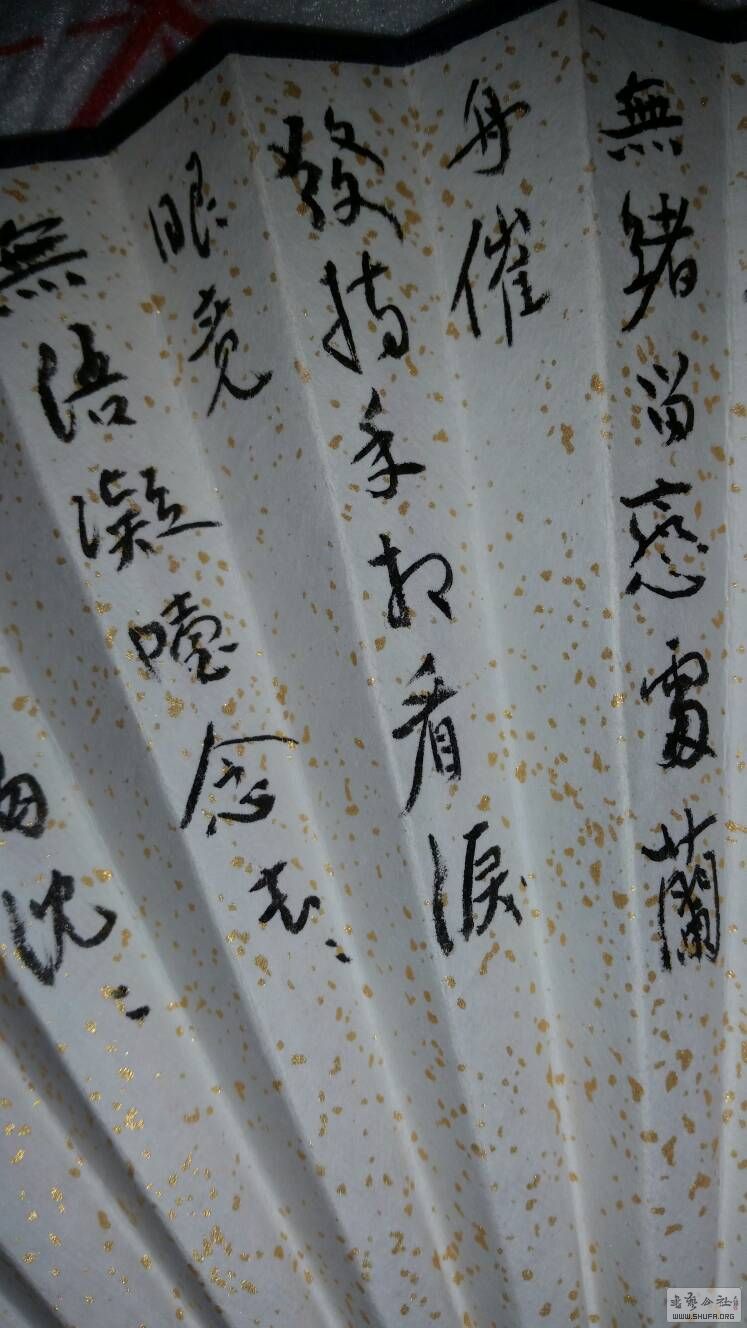 無緒留戀處蘭
舟催
發執手相看淚
眼竟
無語凝噎念去〻
沈〻
書藝公社
WWW.SHUFA.ORG